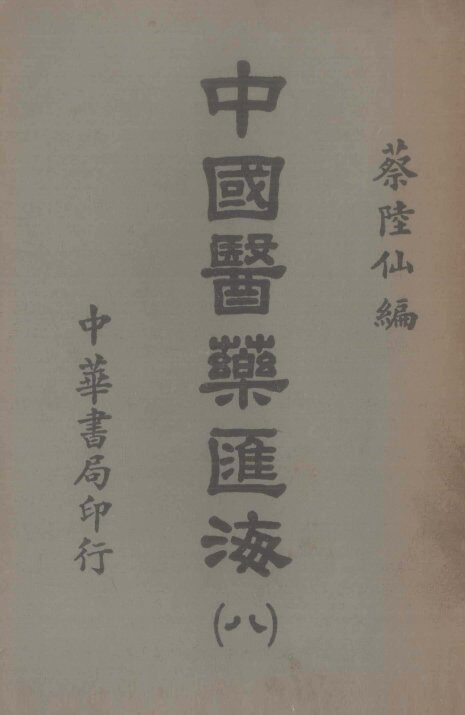 蔡陸仙編
中國醫藥匯海
(八)
中華書局印行